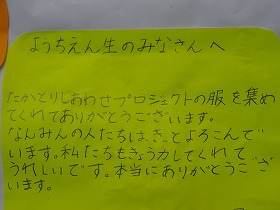 ようちえん生のみなさんへ
たかとりしあわせプロジェクトの服を集め
てくれてありがとうございます。
なんみんの人たちは、きっとよろこんで
います。私たちもきょう力してくれて
うれしいです。本当にありがとうござ
います。